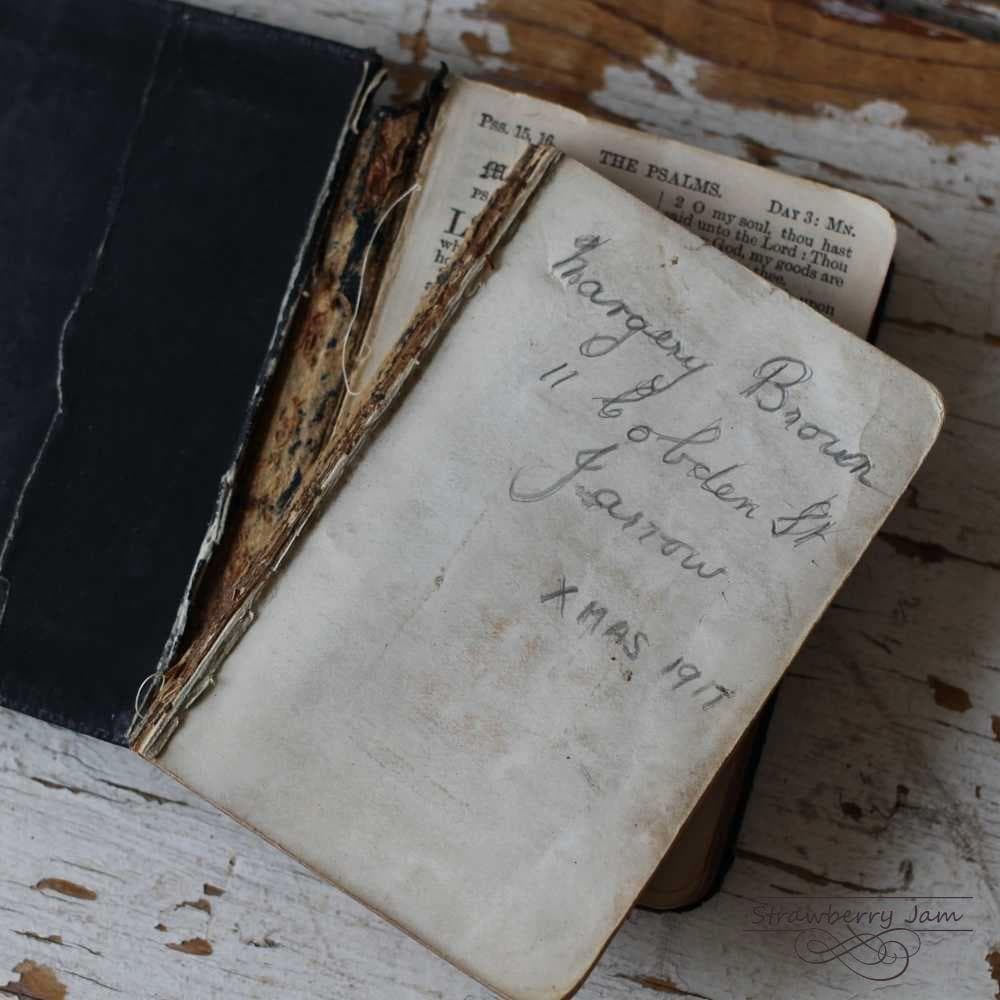 Pss. 15, 16.
THE PSALMS.
DAY 3: MN.
2 O my soul, thou hast
said unto the Lord: Thou
God, my goods are
thee.
upon
Margery Brown
11 Cobden St
Jarrow
XMAS 1917
Strawberry Jam